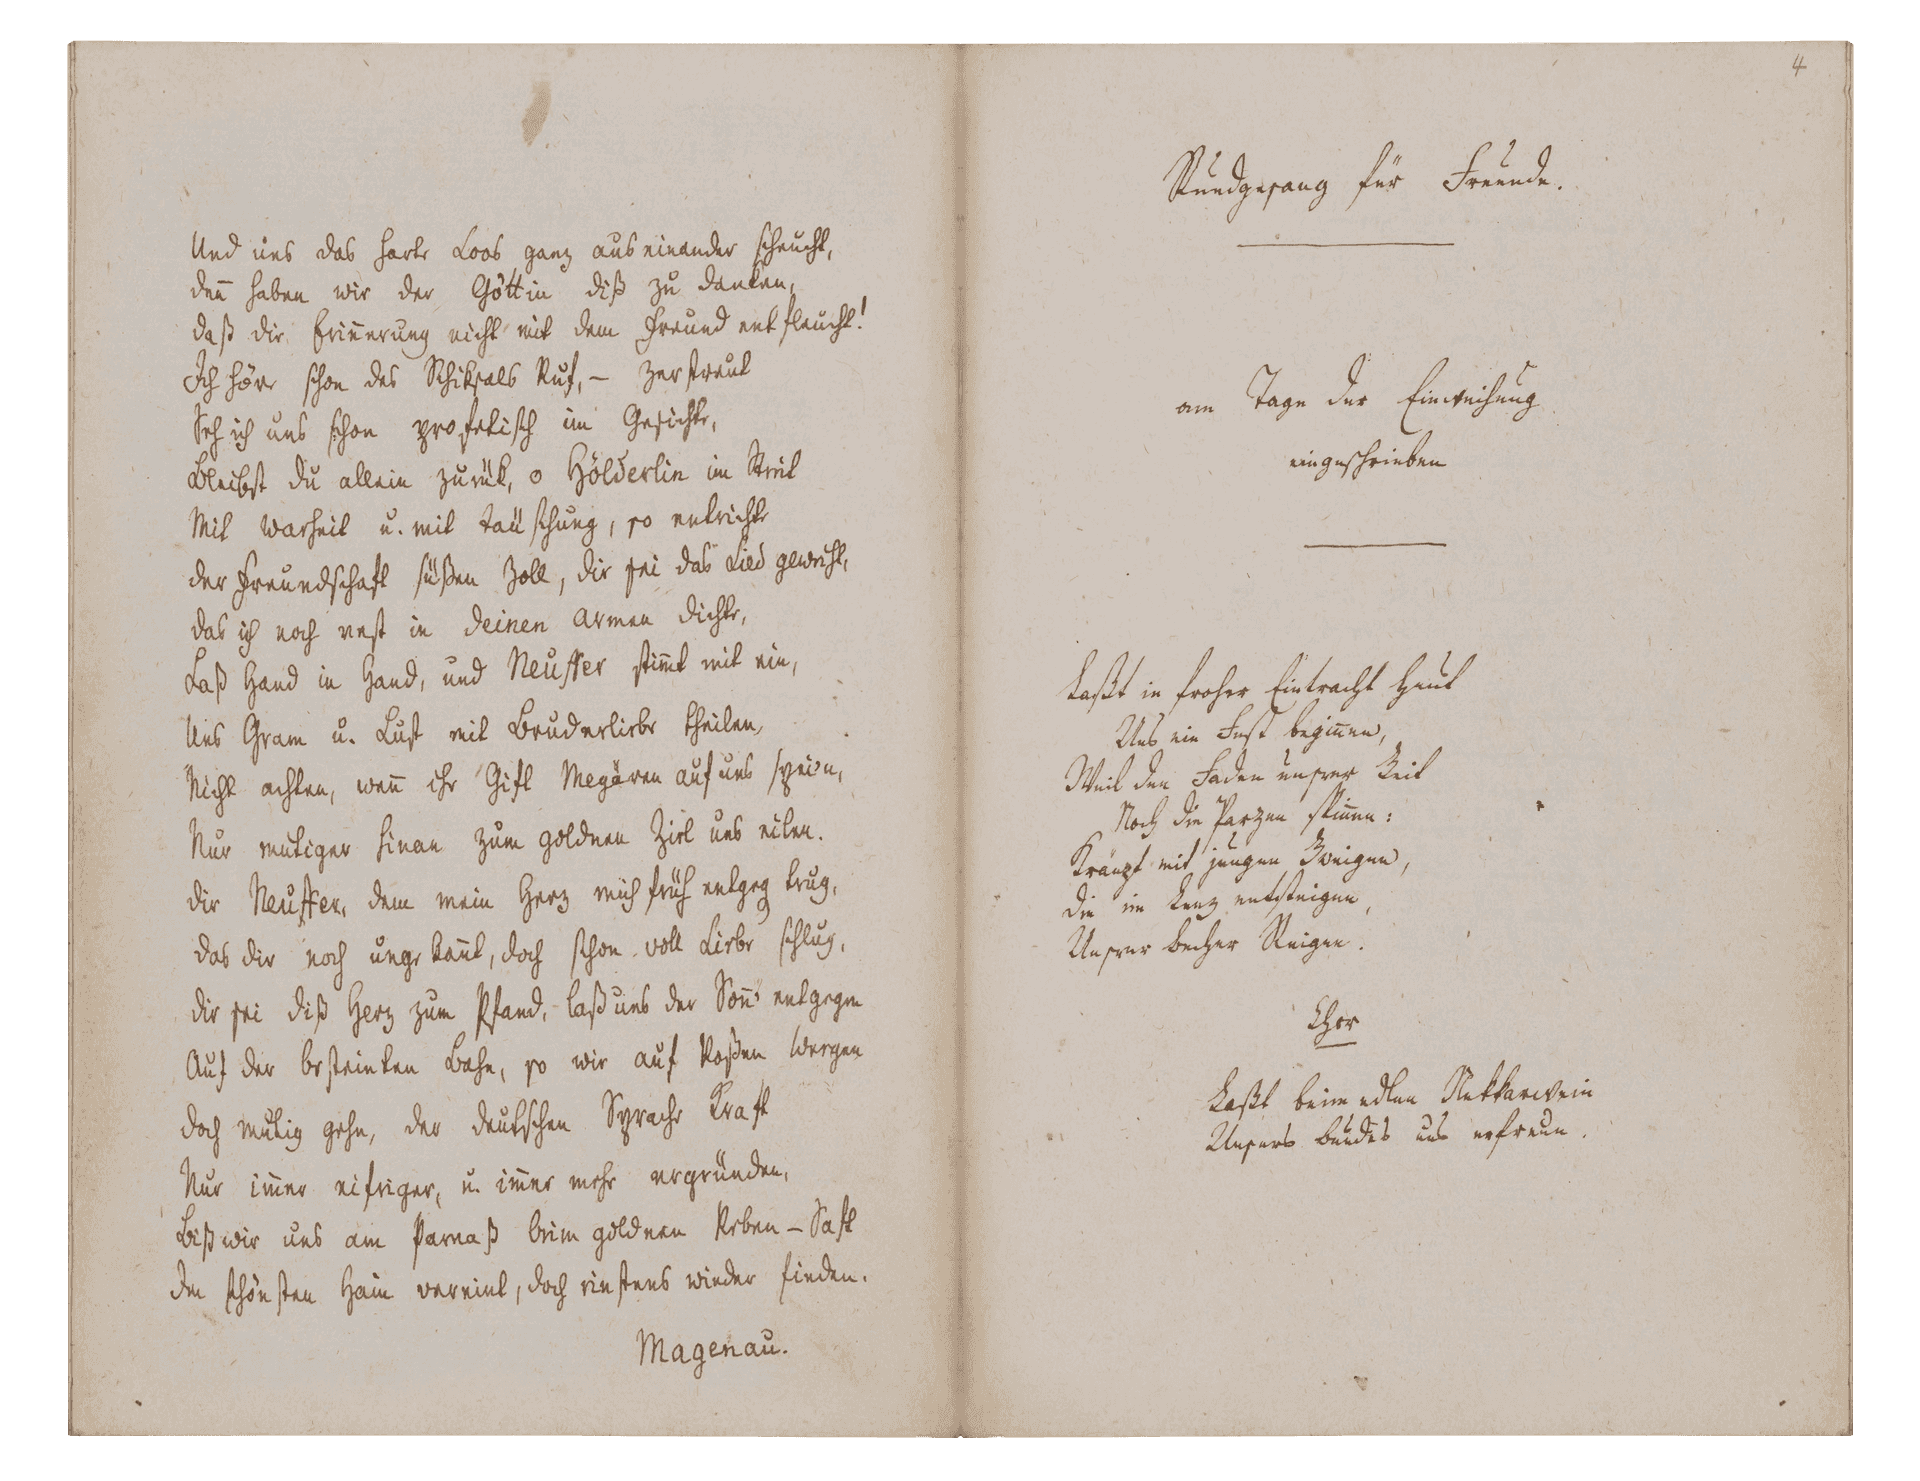 Und uns das harte Loos ganz auseinander scheucht,
deñ haben wir der Göttin diß zu danken,
daß die Eriñerung nicht mit dem Freund entfleucht!
Ich höre schon des Schiksals Ruf, – zerstreut
Seh ich uns schon profetisch im Gesichte,
Bleibst du allein zurük, o Hölderlin im Streit
Mit Warheit u. mit Täuschung, so entrichte
der Freundschaft süßen Zoll, dir sei das Lied geweiht,
das ich noch vest in deinen Armen dichte,
Laß Hand in Hand, und Neuffer stiṁt mit ein,
Uns Gram u. Lust mit Bruderliebe theilen,
Nicht achten, weñ ihr Gift Megären auf uns spein,
Nur mutiger hinan zum goldnen Ziel uns eilen.
dir Neuffer, dem mein Herz mich früh entgeg trug,
das dir noch ungekañt, doch schon voll Liebe schlug,
dir sei diß Herz zum Pfand, laß uns der Soñe entgegen
Auf der besteinten Bahn, so wir auf Roßen
doch mutig gehn, der deutschen Sprache Kraft
Nur iṁer eifriger, u. iṁer mehr ergründen,
Biß wir uns am Parnaß beim goldnen Reben – Saft
Im schönsten Hain vereint, doch einstens wieder finden.
Magenau.
4
Rundgesang für Freunde.
am Tage der Einweihung
eingeschrieben
Laßt in froher Eintracht heut
Uns ein Fest begiñen,
Weil den Faden unsrer Zeit
Noch die Parzen spiñen:
Kränzt mit jungen Zweigen,
Die im Lenz entsteigen,
Unsrer Becher Reigen.
Chor
Laßt beim edlen Nekkarwein
Unsers Bundes uns erfreun.